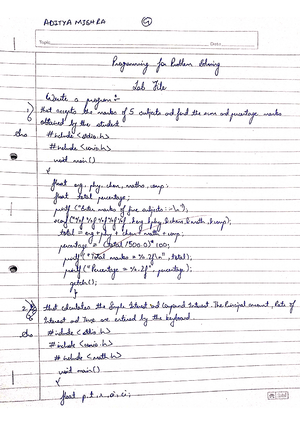 ADITYA MISHRA
Topic
Date
Programming for Problem Solving
Lab File
Write a program :-
that accepts the marks of 5 subjects and find the sum and percentage marks
obtained by the student
#include <stdio.h>
#include <conio.h>
void main()
{
float eng, phy, chem, maths, comp;
float total, percentage;
printf("Enter marks of five subjects :-\n");
scanf("%f%f%f%f%f", &eng, &phy, &chem, &math, &comp);
total = eng + phy + chem + math + comp;
percentage = (total/500.0)*100;
printf("Total marks = %.2f\n", total);
printf("Percentage = %.2f", percentage);
getch();
}
2. that calculates the Simple Interest and Compound Interest. The Principal amount, Rate of
Interest and Time are entered by the keyboard.
#include <stdio.h>
#include <conio.h>
#include <math.h>
void main()
{
float p, t, r, si, ci;